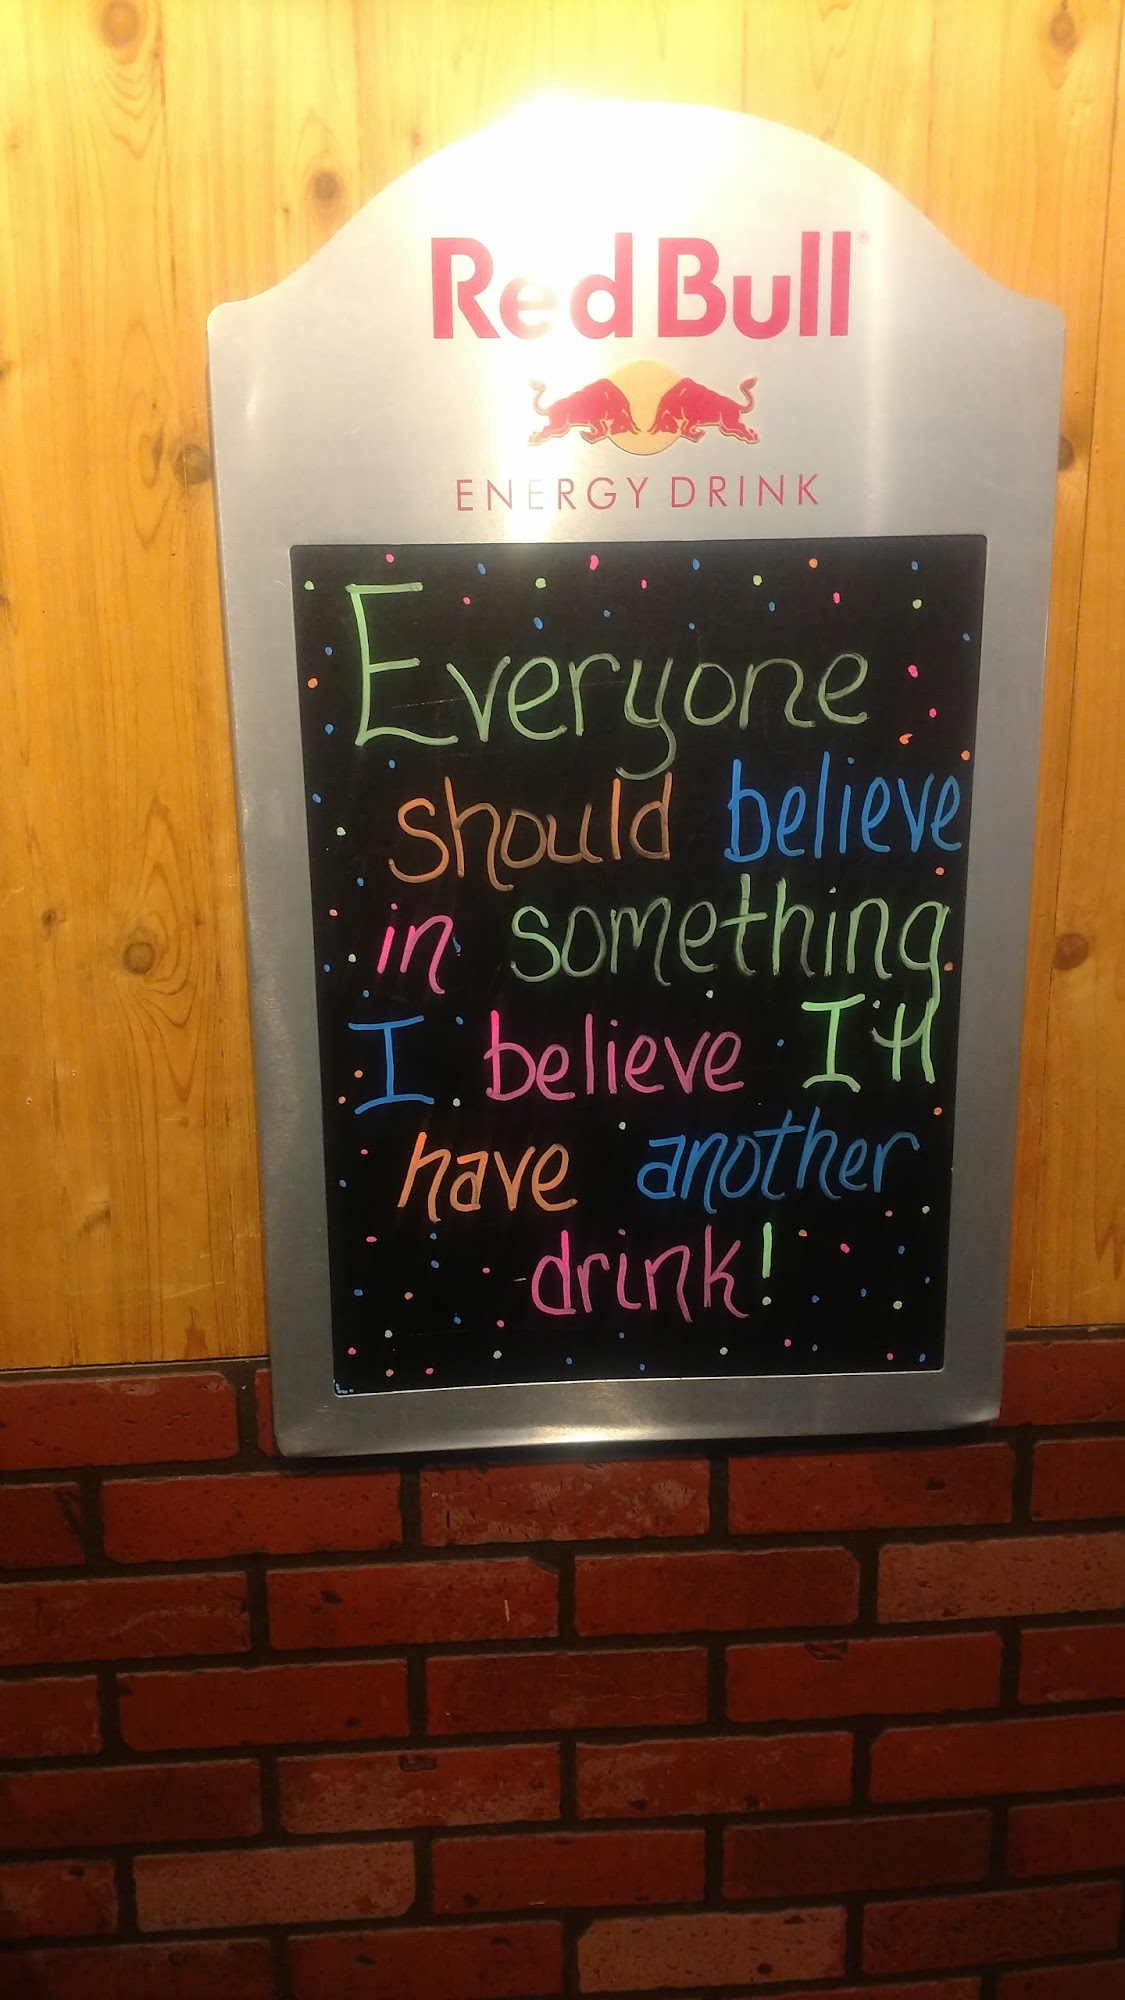 Red Bull®
ENERGY DRINK
Everyone
should believe
in something
I believe I'll
have another
drink!